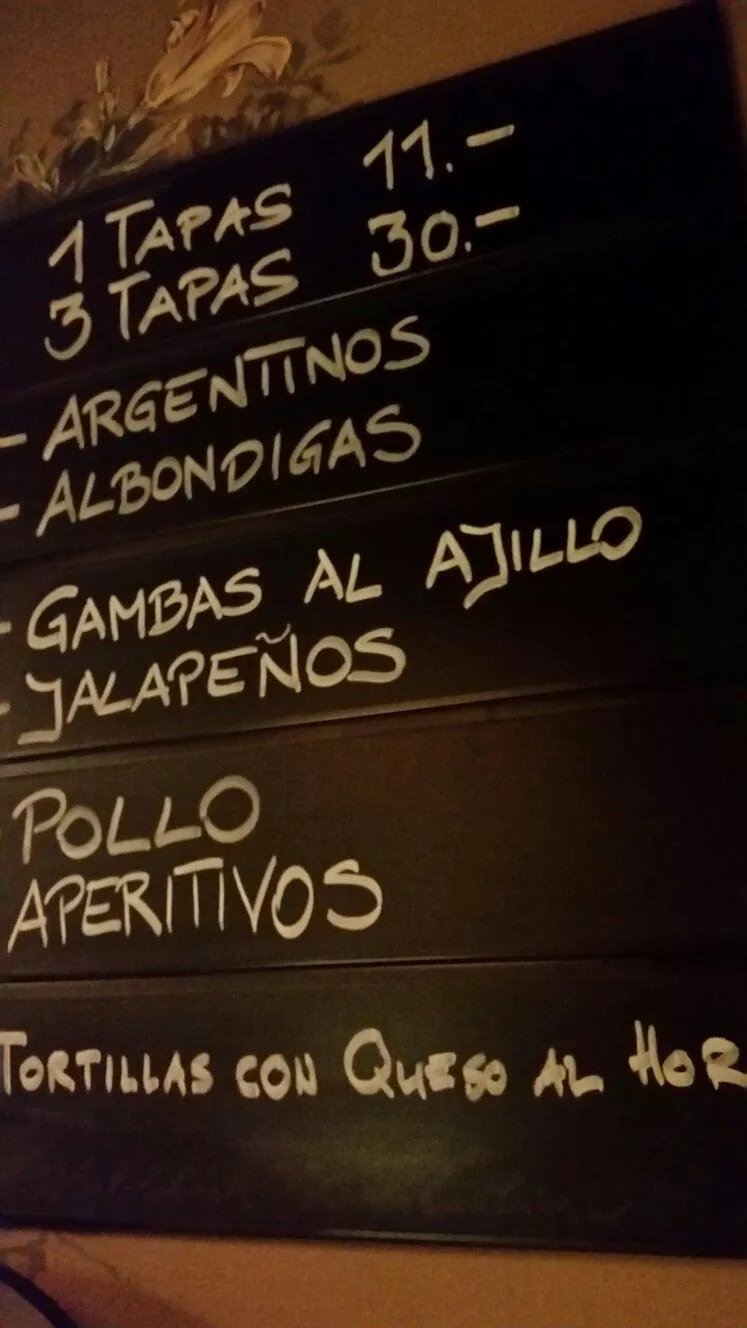 1 TAPAS 11.-
3 TAPAS 30.-
- ARGENTINOS
- ALBONDIGAS
- GAMBAS AL AJILLO
- JALAPEÑOS
POLLO
APERITIVOS
TORTILLAS CON QUESO AL HOR